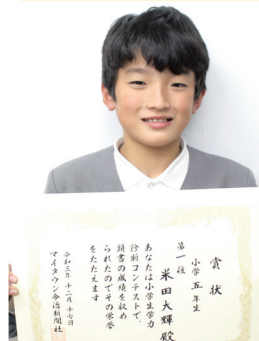 賞状
小学五年生
第一位
米田大輝殿
あなたは小学生学力
診断コンテストで、
頭書の成績を収め
られたのでその栄誉
をたたえます
令和三年十二月十七日
マイタウン今治新聞社